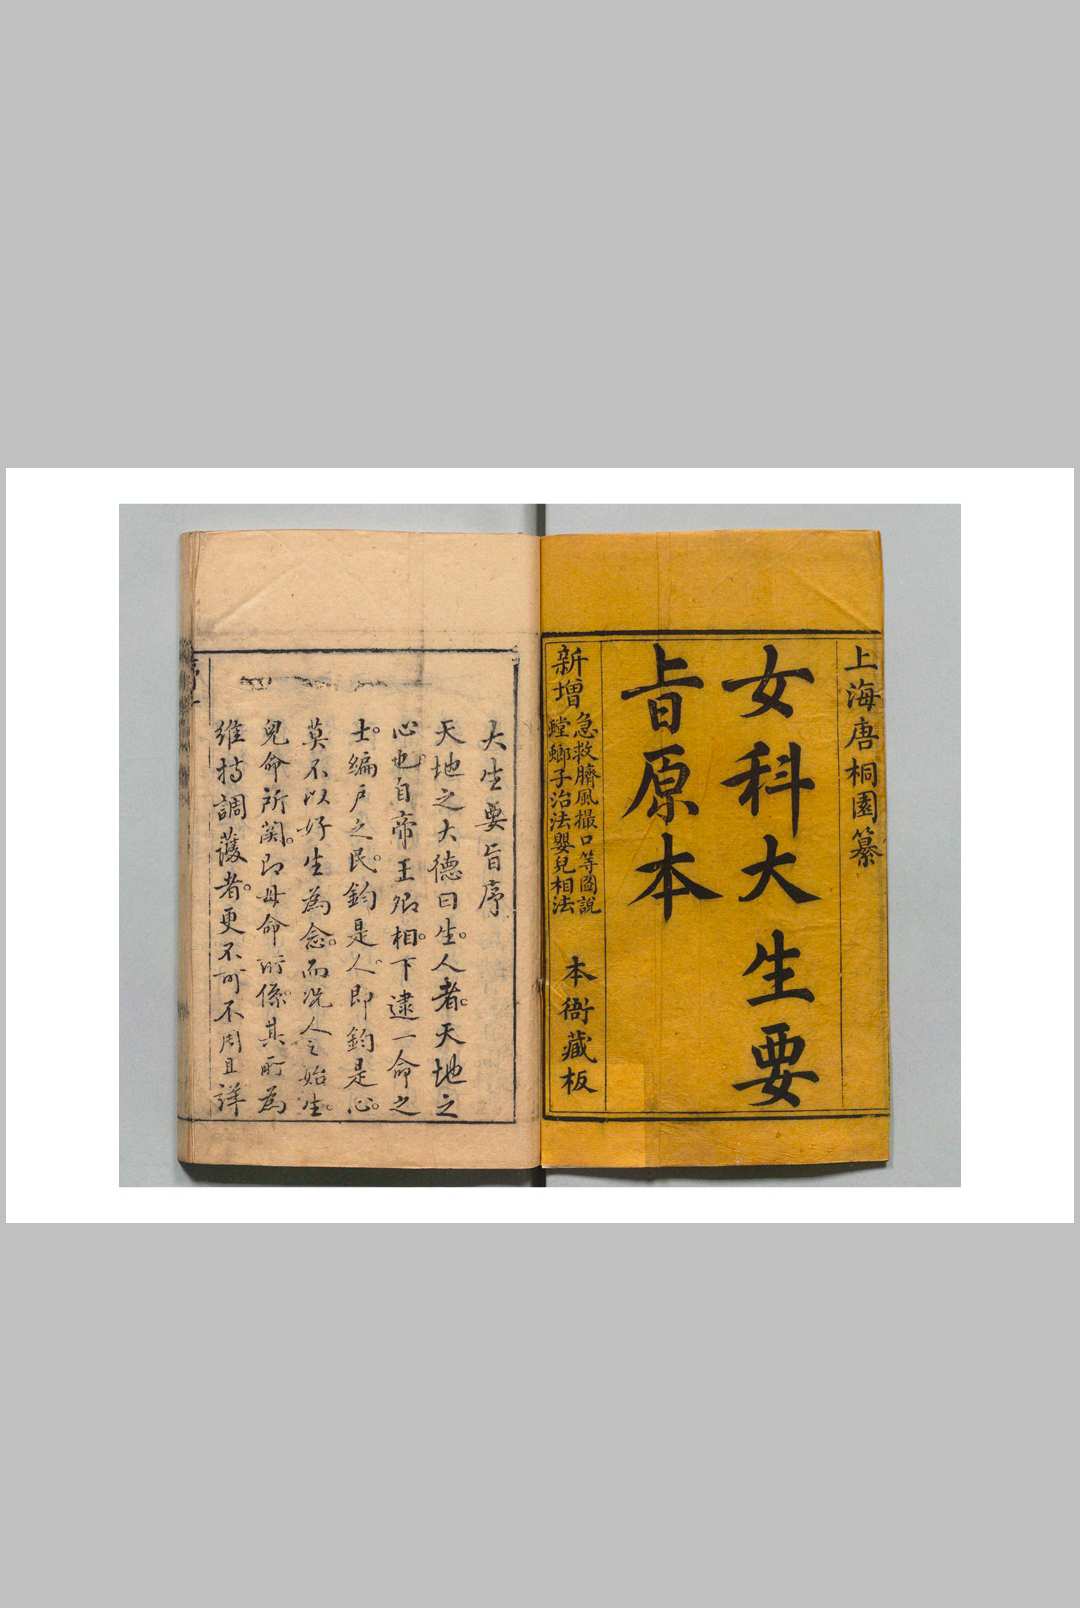 上海唐桐園纂
女科大生要
旨原本
新增
急救臍風撮口等圖説
螳螂子治法嬰兒相法
本衙藏板
大生要旨序
天地之大德曰生。人者。天地之
心也。自帝王卿相。下逮一命之
士。編户之民。鈞是人。即鈞是心。
莫不以好生為念。而况人之始生。
兒命所関。即母命所係。其所為
維持調護者。更不可不周且詳